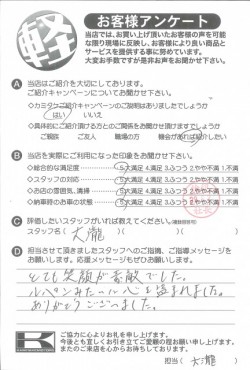 軽
お客様アンケート
当店では、お買い上げ頂いたお客様の声を可能
な限り現場に反映し、お客様により良い商品と
サービスを提供する事に努めています。
大変お手数ですが是非お声をお聞かせ下さい。
A 当店はご紹介を大切にしております。
ご紹介キャンペーンについてお聞かせ下さい。
◇カミタケご紹介キャンペーンのご説明はありましたでしょうか
はい いいえ
◇具体的にご紹介頂ける方とのご関係をお聞かせ頂けますでしょうか
ご親族 ご友人 職場の方 機会があれば紹介したい
B 当店を実際にご利用になった印象をお聞かせ下さい。
◇総合的な満足度 5大満足 4.満足 3.ふつう 2.やや不満 1.不満
◇スタッフの対応 5大満足 4.満足 3.ふつう 2.やや不満 1.不満
◇お店の雰囲気、清掃 5大満足 4.満足 3.ふつう 2.やや不満 1.不満
◇納車時のお車の状態 5大満足 4.満足 3.ふつう 2.やや不満 1.不満
C 評価したいスタッフがいれば教えてください。(複数回答可)
スタッフ名( 大瀧 )
D 担当させて頂きましたスタッフへのご指摘、ご指導メッセージを
お願いします。応援メッセージもぜひお願いします。
とても笑顔が素敵でした。
ルパンみたいに心を盗まれました。
ありがとうございました。
ご協力に心よりお礼を申し上げます。
今後とも宜しくお引き立てご愛顧の程お願い申し上げます。
またのご来店を心からお待ちしております。
担当( 大瀧 )